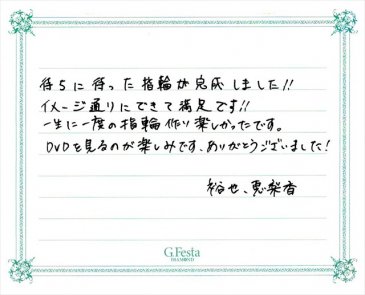 待ちに待った指輪が完成しました!!
イメージ通りにできて満足です!!
一生に一度の指輪作り楽しかったです。
DVDを見るのが楽しみです、ありがとうございました!
裕也、恵梨香
G.Festa
DIAMOND